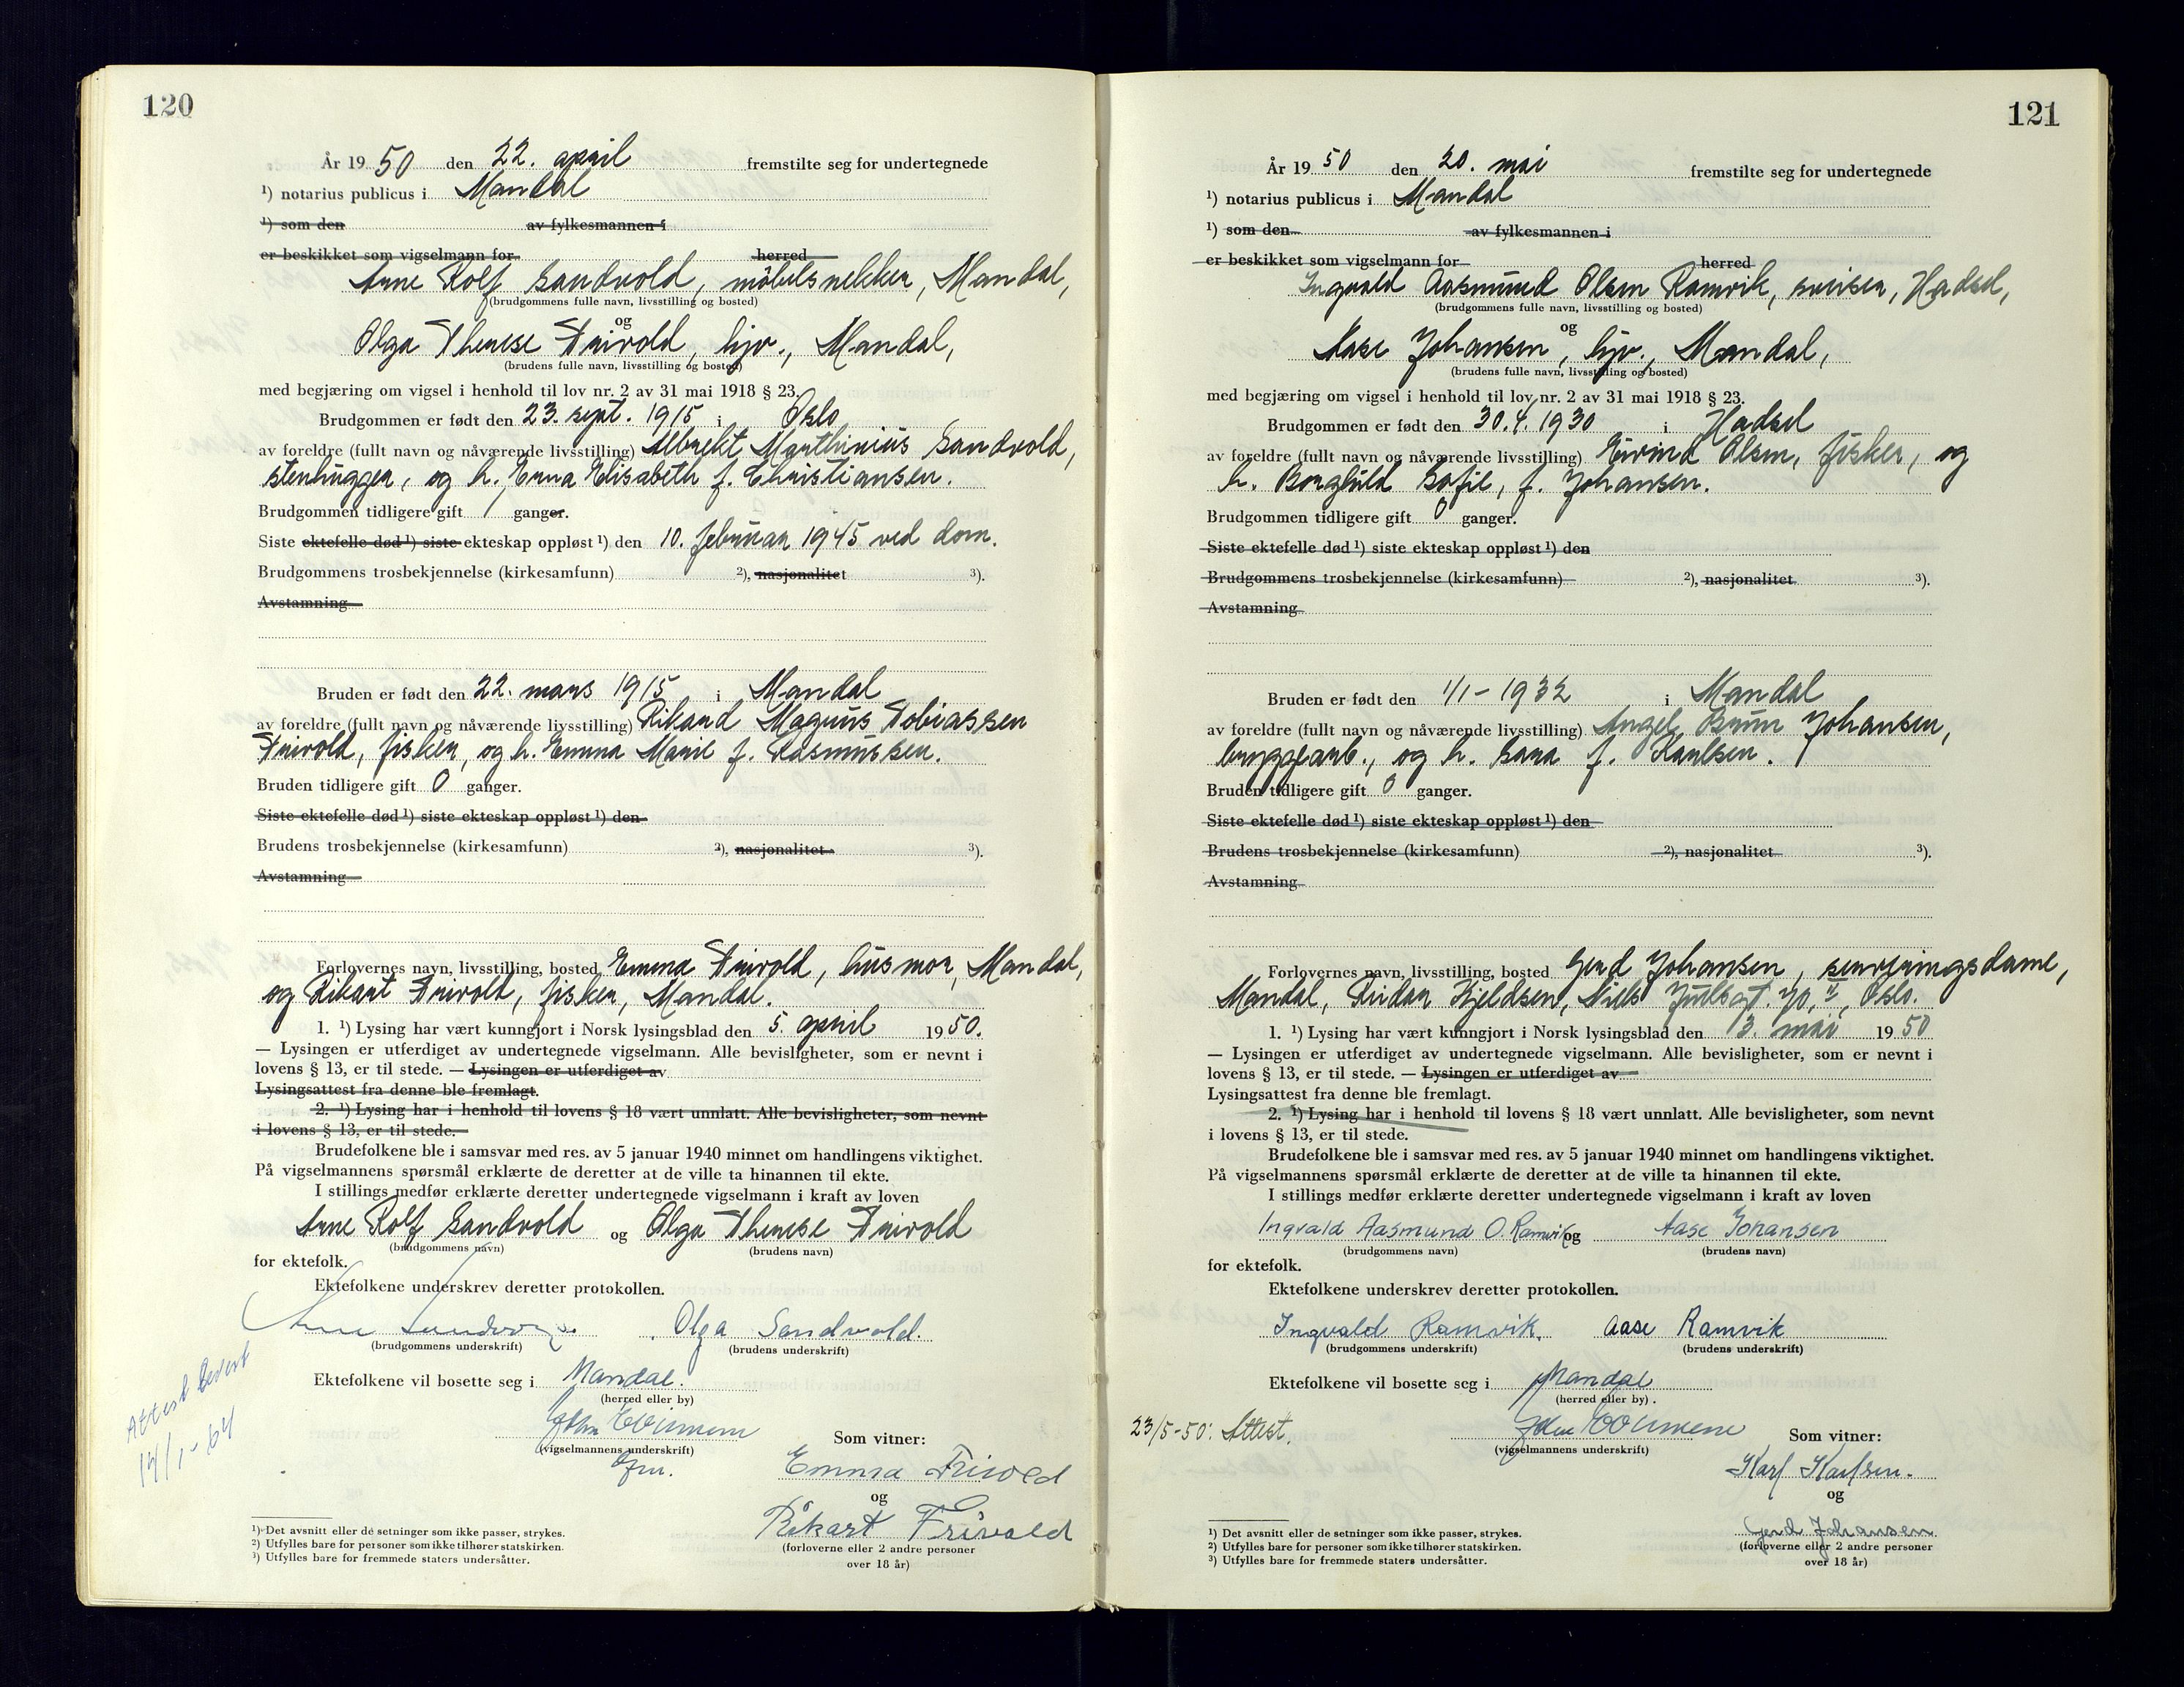 120
År 19 50 den 22. april fremstilte seg for undertegnede
¹) notarius publicus i Mandal
¹) som den av fylkesmannen i
er beskikket som vigselmann for herred
Arne Rolf Sandvold, möbelsnekker, Mandal,
(brudgommens fulle navn, livsstilling og bosted)
og
Olga Therese Frivold, hjv., Mandal,
(brudens fulle navn, livsstilling og bosted)
med begjæring om vigsel i henhold til lov nr. 2 av 31 mai 1918 § 23.
Brudgommen er født den 23. sept. 1915 i Oslo
av foreldre (fullt navn og nåværende livsstilling) Albrekt Marthinius Sandvold,
stenhugger, og h. Erna Elisabeth f. Christiansen.
Brudgommen tidligere gift 1 ganger.
Siste ektefelle død ¹) siste ekteskap oppløst ¹) den 10. februar 1945 ved dom.
Brudgommens trosbekjennelse (kirkesamfunn) ²), nasjonalitet ³).
Avstamning
Bruden er født den 22. mars 1915 i Mandal
av foreldre (fullt navn og nåværende livsstilling) Rikard Magnus Tobiassen
Frivold, fisker, og h. Emma Marie f. Rasmussen.
Bruden tidligere gift 0 ganger.
Siste ektefelle død ¹) siste ekteskap oppløst ¹) den
Brudens trosbekjennelse (kirkesamfunn) ²), nasjonalitet ³).
Avstamning
Forlovernes navn, livsstilling, bosted Emma Frivold, husmor, Mandal,
og Rikart Frivold, fisker, Mandal.
1. ¹) Lysing har vært kunngjort i Norsk lysingsblad den 5. april 1950.
— Lysingen er utferdiget av undertegnede vigselmann. Alle bevisligheter, som er nevnt i
lovens § 13, er til stede. — Lysingen er utferdiget av
Lysingsattest fra denne ble fremlagt.
2. ¹) Lysing har i henhold til lovens § 18 vært unnlatt. Alle bevisligheter, som nevnt
i lovens § 13, er til stede.
Brudefolkene ble i samsvar med res. av 5 januar 1940 minnet om handlingens viktighet.
På vigselmannens spørsmål erklærte de deretter at de ville ta hinannen til ekte.
I stillings medfør erklærte deretter undertegnede vigselmann i kraft av loven
Arne Rolf Sandvold og Olga Therese Frivold
(brudgommens navn) (brudens navn)
for ektefolk.
Ektefolkene underskrev deretter protokollen.
Arne Sandvold Olga Sandvold.
(brudgommens underskrift) (brudens underskrift)
Attest levert
14/1-64
Ektefolkene vil bosette seg i Mandal.
(herred eller by)
(vigselmannens underskrift)
Som vitner:
Emma Frivold
og
Rikart Frivold
(forloverne eller 2 andre personer
over 18 år)
¹) Det avsnitt eller de setninger som ikke passer, strykes.
²) Utfylles bare for personer som ikke tilhører statskirken.
³) Utfylles bare for fremmede staters undersåtter.
121
År 19 50 den 20. mai fremstilte seg for undertegnede
¹) notarius publicus i Mandal
¹) som den av fylkesmannen i
er beskikket som vigselmann for herred
Ingvald Aasmund Olsen Ramvik, sveiser, Hadsel,
(brudgommens fulle navn, livsstilling og bosted)
og
Aase Johansen, hjv., Mandal,
(brudens fulle navn, livsstilling og bosted)
med begjæring om vigsel i henhold til lov nr. 2 av 31 mai 1918 § 23.
Brudgommen er født den 30.4.1930 i Hadsel
av foreldre (fullt navn og nåværende livsstilling) Eivind Olsen, fisker, og
h. Borghild Sofie, f. Johansen.
Brudgommen tidligere gift 0 ganger.
Siste ektefelle død ¹) siste ekteskap oppløst ¹) den
Brudgommens trosbekjennelse (kirkesamfunn) ²), nasjonalitet ³).
Avstamning
Bruden er født den 1/1-1932 i Mandal
av foreldre (fullt navn og nåværende livsstilling) Angel Bruun Johansen,
bryggearb., og h. Sara f. Karlsen.
Bruden tidligere gift 0 ganger.
Siste ektefelle død ¹) siste ekteskap oppløst ¹) den
Brudens trosbekjennelse (kirkesamfunn) ²), nasjonalitet ³).
Avstamning
Forlovernes navn, livsstilling, bosted Gerd Johansen, serveringsdame,
Mandal, Reidar Kjeldsen, Niels Juelsgt. 70, II, Oslo.
1. ¹) Lysing har vært kunngjort i Norsk lysingsblad den 3. mai 1950
— Lysingen er utferdiget av undertegnede vigselmann. Alle bevisligheter, som er nevnt i
lovens § 13, er til stede. — Lysingen er utferdiget av
Lysingsattest fra denne ble fremlagt.
2. ¹) Lysing har i henhold til lovens § 18 vært unnlatt. Alle bevisligheter, som nevnt
i lovens § 13, er til stede.
Brudefolkene ble i samsvar med res. av 5 januar 1940 minnet om handlingens viktighet.
På vigselmannens spørsmål erklærte de deretter at de ville ta hinannen til ekte.
I stillings medfør erklærte deretter undertegnede vigselmann i kraft av loven
Ingvald Aasmund O. Ramvik og Aase Johansen
(brudgommens navn) (brudens navn)
for ektefolk.
Ektefolkene underskrev deretter protokollen.
Ingvald Ramvik. Aase Ramvik
(brudgommens underskrift) (brudens underskrift)
Ektefolkene vil bosette seg i Mandal
(herred eller by).
23/5-50: Attest.
(vigselmannens underskrift)
Som vitner:
Karl Karlsen.
og
Gerd Johansen.
(forloverne eller 2 andre personer
over 18 år)
¹) Det avsnitt eller de setninger som ikke passer, strykes.
²) Utfylles bare for personer som ikke tilhører statskirken.
³) Utfylles bare for fremmede staters undersåtter.